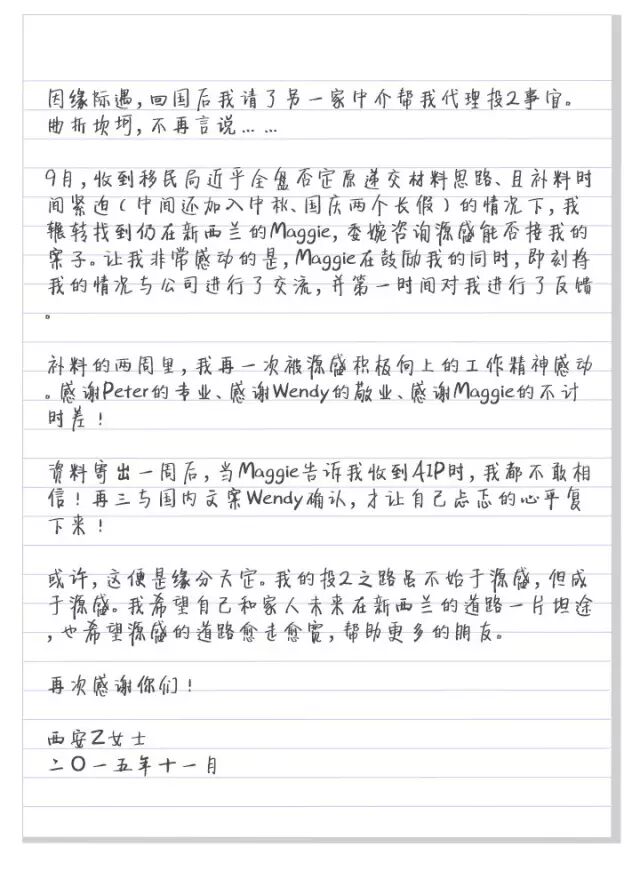 因缘际遇，回国后我请了另一家中介帮我代理投2事宜。
曲折坎坷，不再言说……
9月，收到移民局近乎全盘否定原递交材料思路、且补料时
间紧迫（中间还加入中秋、国庆两个长假）的情况下，我
辗转找到仍在新西兰的Maggie，委婉咨询源盛能否接我的
案子。让我非常感动的是，Maggie在鼓励我的同时，即刻将
我的情况与公司进行了交流，并第一时间对我进行了反馈
。
补料的两周里，我再一次被源盛积极向上的工作精神感动
。感谢Peter的专业、感谢Wendy的敬业、感谢Maggie的不计
时差！
资料寄出一周后，当Maggie告诉我收到AIP时，我都不敢相
信！再三与国内文案Wendy确认，才让自己忐忑的心平复
下来！
或许，这便是缘分天定。我的投2之路虽不始于源盛，但成
于源盛。我希望自己和家人未来在新西兰的道路一片坦途
，也希望源盛的道路愈走愈宽，帮助更多的朋友。
再次感谢你们！
西安Z女士
二〇一五年十一月